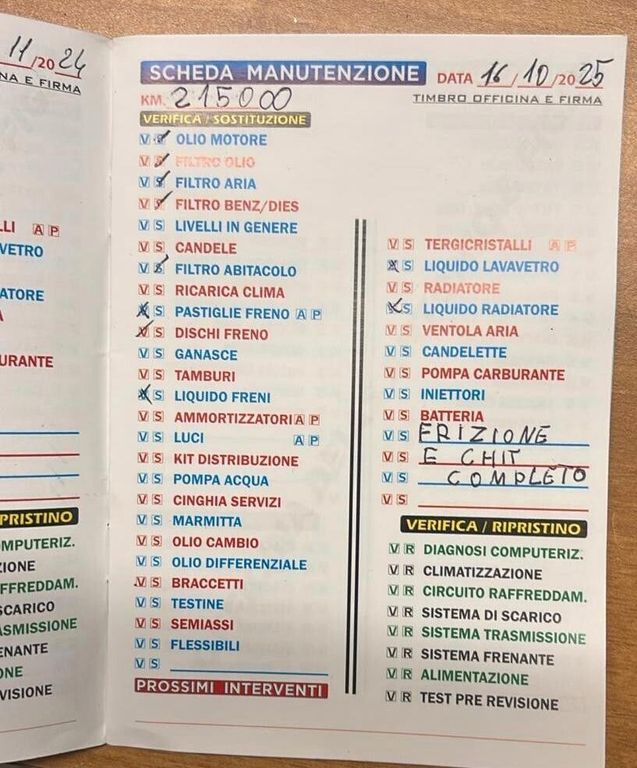 11/2024
NA E FIRMA
LLI A P
AVETRO
ATORE
A
URANTE
PRISTINO
OMPUTERIZ.
ZIONE
AFFREDDAM.
SCARICO
ASMISSIONE
ENANTE
ONE
VISIONE
SCHEDA MANUTENZIONE DATA 16/10/2025
KM. 215000 TIMBRO OFFICINA E FIRMA
VERIFICA / SOSTITUZIONE
V S OLIO MOTORE
V S FILTRO OLIO
V S FILTRO ARIA
V S FILTRO BENZ/DIES
V S LIVELLI IN GENERE
V S CANDELE
V S FILTRO ABITACOLO
V S RICARICA CLIMA
V S PASTIGLIE FRENO A P
V S DISCHI FRENO
V S GANASCE
V S TAMBURI
V S LIQUIDO FRENI
V S AMMORTIZZATORI A P
V S LUCI A P
V S KIT DISTRIBUZIONE
V S POMPA ACQUA
V S CINGHIA SERVIZI
V S MARMITTA
V S OLIO CAMBIO
V S OLIO DIFFERENZIALE
V S BRACCETTI
V S TESTINE
V S SEMIASSI
V S FLESSIBILI
V S
PROSSIMI INTERVENTI
V S TERGICRISTALLI A P
V S LIQUIDO LAVAVETRO
V S RADIATORE
V S LIQUIDO RADIATORE
V S VENTOLA ARIA
V S CANDELETTE
V S POMPA CARBURANTE
V S INIETTORI
V S BATTERIA
V S FRIZIONE
V S E CHIT
V S COMPLETO
V S
VERIFICA / RIPRISTINO
V R DIAGNOSI COMPUTERIZ.
V R CLIMATIZZAZIONE
V R CIRCUITO RAFFREDDAM.
V R SISTEMA DI SCARICO
V R SISTEMA TRASMISSIONE
V R SISTEMA FRENANTE
V R ALIMENTAZIONE
V R TEST PRE REVISIONE